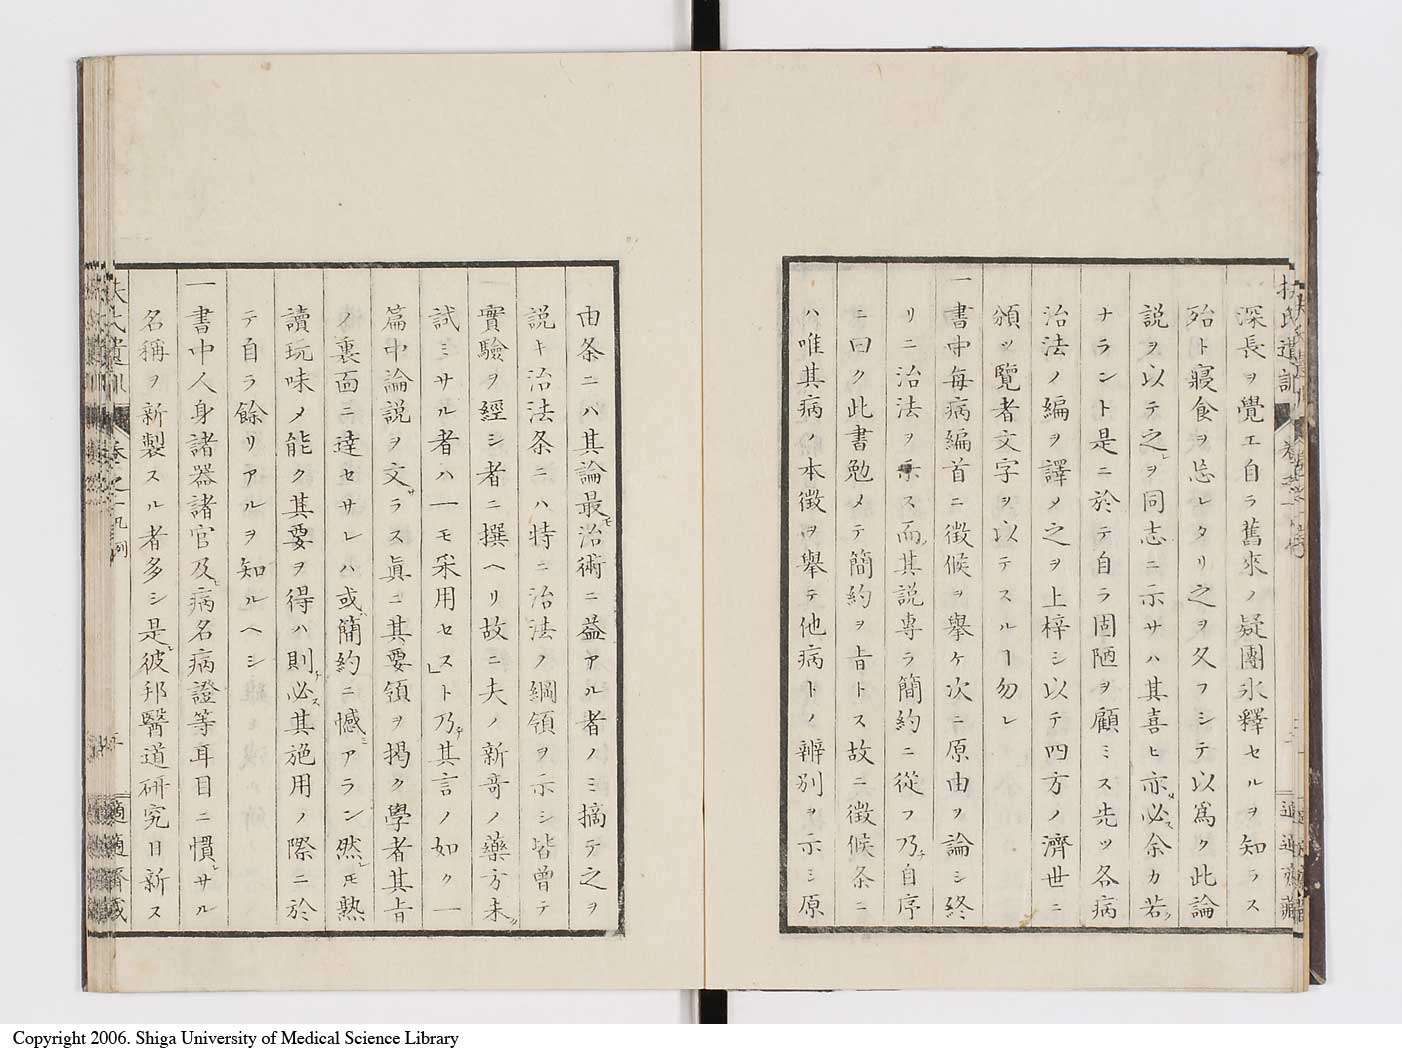 深長ヲ覺エ自ラ舊來ノ疑團氷釋セルヲ知ラス
殆ト寢食ヲ忘レタリ之ヲ久フシテ以爲ク此論
説ヲ以テ之ヲ同志ニ示サハ其喜ヒ亦必ス余カ若ク
ナラント是ニ於テ自ラ固陋ヲ顧ミス先ツ各病
治法ノ編ヲ譯メ之ヲ上梓シ以テ四方ノ濟世ニ
頒ツ覽者文字ヲ以テスルヿ勿レ
一書中毎病編首ニ徴候ヲ擧ケ次ニ原由ヲ論シ終
リニ治法ヲ示ス而其説専ラ簡約ニ從フ乃チ自序
ニ曰ク此書勉メテ簡約ヲ旨トス故ニ徴候条ニ
ハ唯其病ノ本徴ヲ擧テ他病トノ辨別ヲ示シ原
扶氏遺訓
由条ニハ其論最モ治術ニ益アル者ノミ摘テ之ヲ
説キ治法条ニハ特ニ治法ノ綱領ヲ示シ皆曾テ
實驗ヲ經シ者ニ撰ヘリ故ニ夫ノ新奇ノ藥方未タ
試ミサル者ハ一モ采用セス」ト乃チ其言ノ如ク一
篇中論説ヲ文ラス眞ニ其要領ヲ掲ク學者其旨
ノ裏面ニ達セサレハ或ハ簡約ニ憾ミアラン然レ𪜈熟
讀玩味メ能ク其要ヲ得ハ則チ必ス其施用ノ際ニ於
テ自ラ餘リアルヲ知ルヘシ
一書中人身諸器諸官及ヒ病名病證等耳目ニ慣レサル
名稱ヲ新製スル者多シ是レ彼邦醫道研究日新ス
扶氏遺訓 卷之一凡例
適適齋藏
Copyright 2006. Shiga University of Medical Science Library